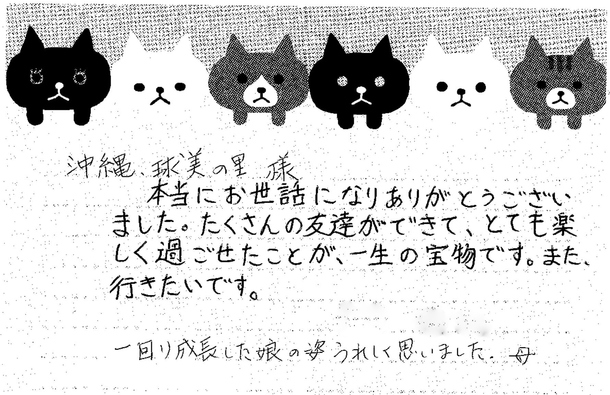 沖縄、球美の里 様
本当にお世話になりありがとうござい
ました。たくさんの友達ができて、とても楽
しく過ごせたことが、一生の宝物です。また、
行きたいです。
一回り成長した娘の姿うれしく思いました。母